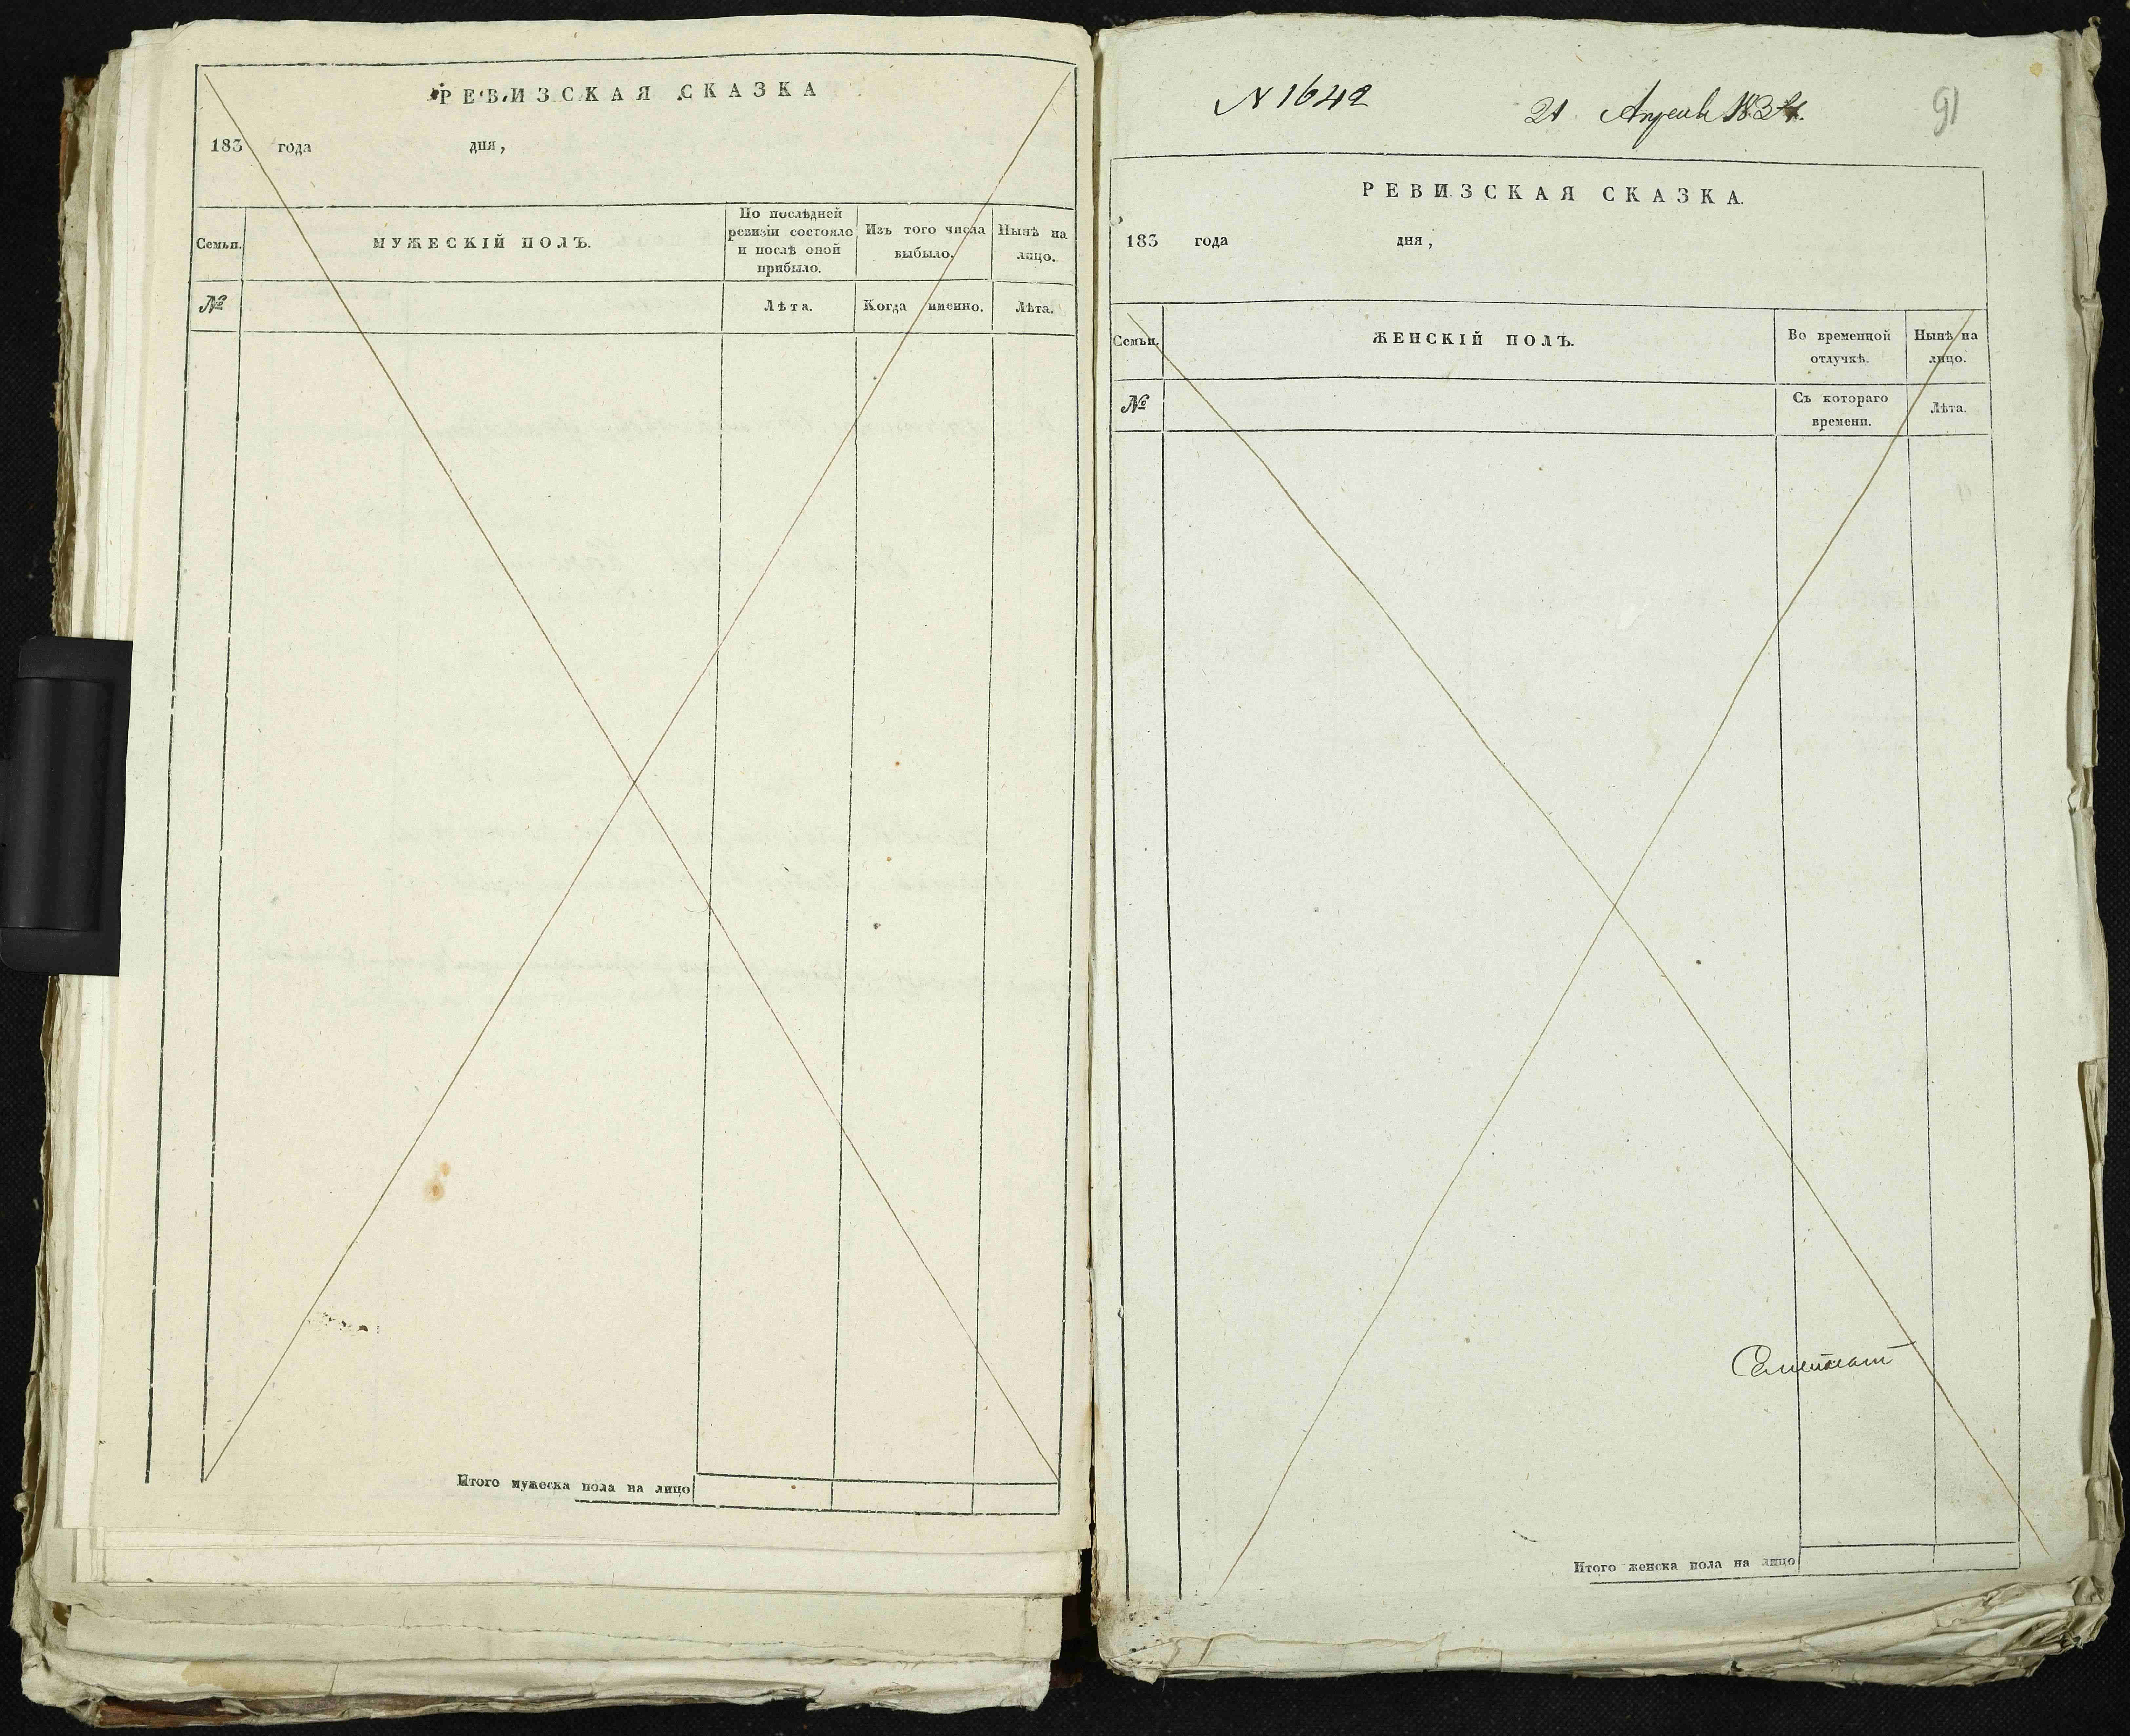 РЕВИЗСКАЯ СКАЗКА
183 года дня,
Семьи.
МУЖЕСКІЙ ПОЛЪ.
По послѣдней ревизіи состояло и послѣ оной прибыло.
Изъ того числа выбыло.
Нынѣ на лицо.
№
Лѣта.
Когда именно.
Лѣта.
Итого мужеска пола на лицо
N 1642
21 Апреля 1834.
91
РЕВИЗСКАЯ СКАЗКА.
183 года дня,
Семьи.
ЖЕНСКІЙ ПОЛЪ.
Во временной отлучкѣ.
Нынѣ на лицо.
№
Съ котораго времени.
Лѣта.
Итого женска пола на лицо